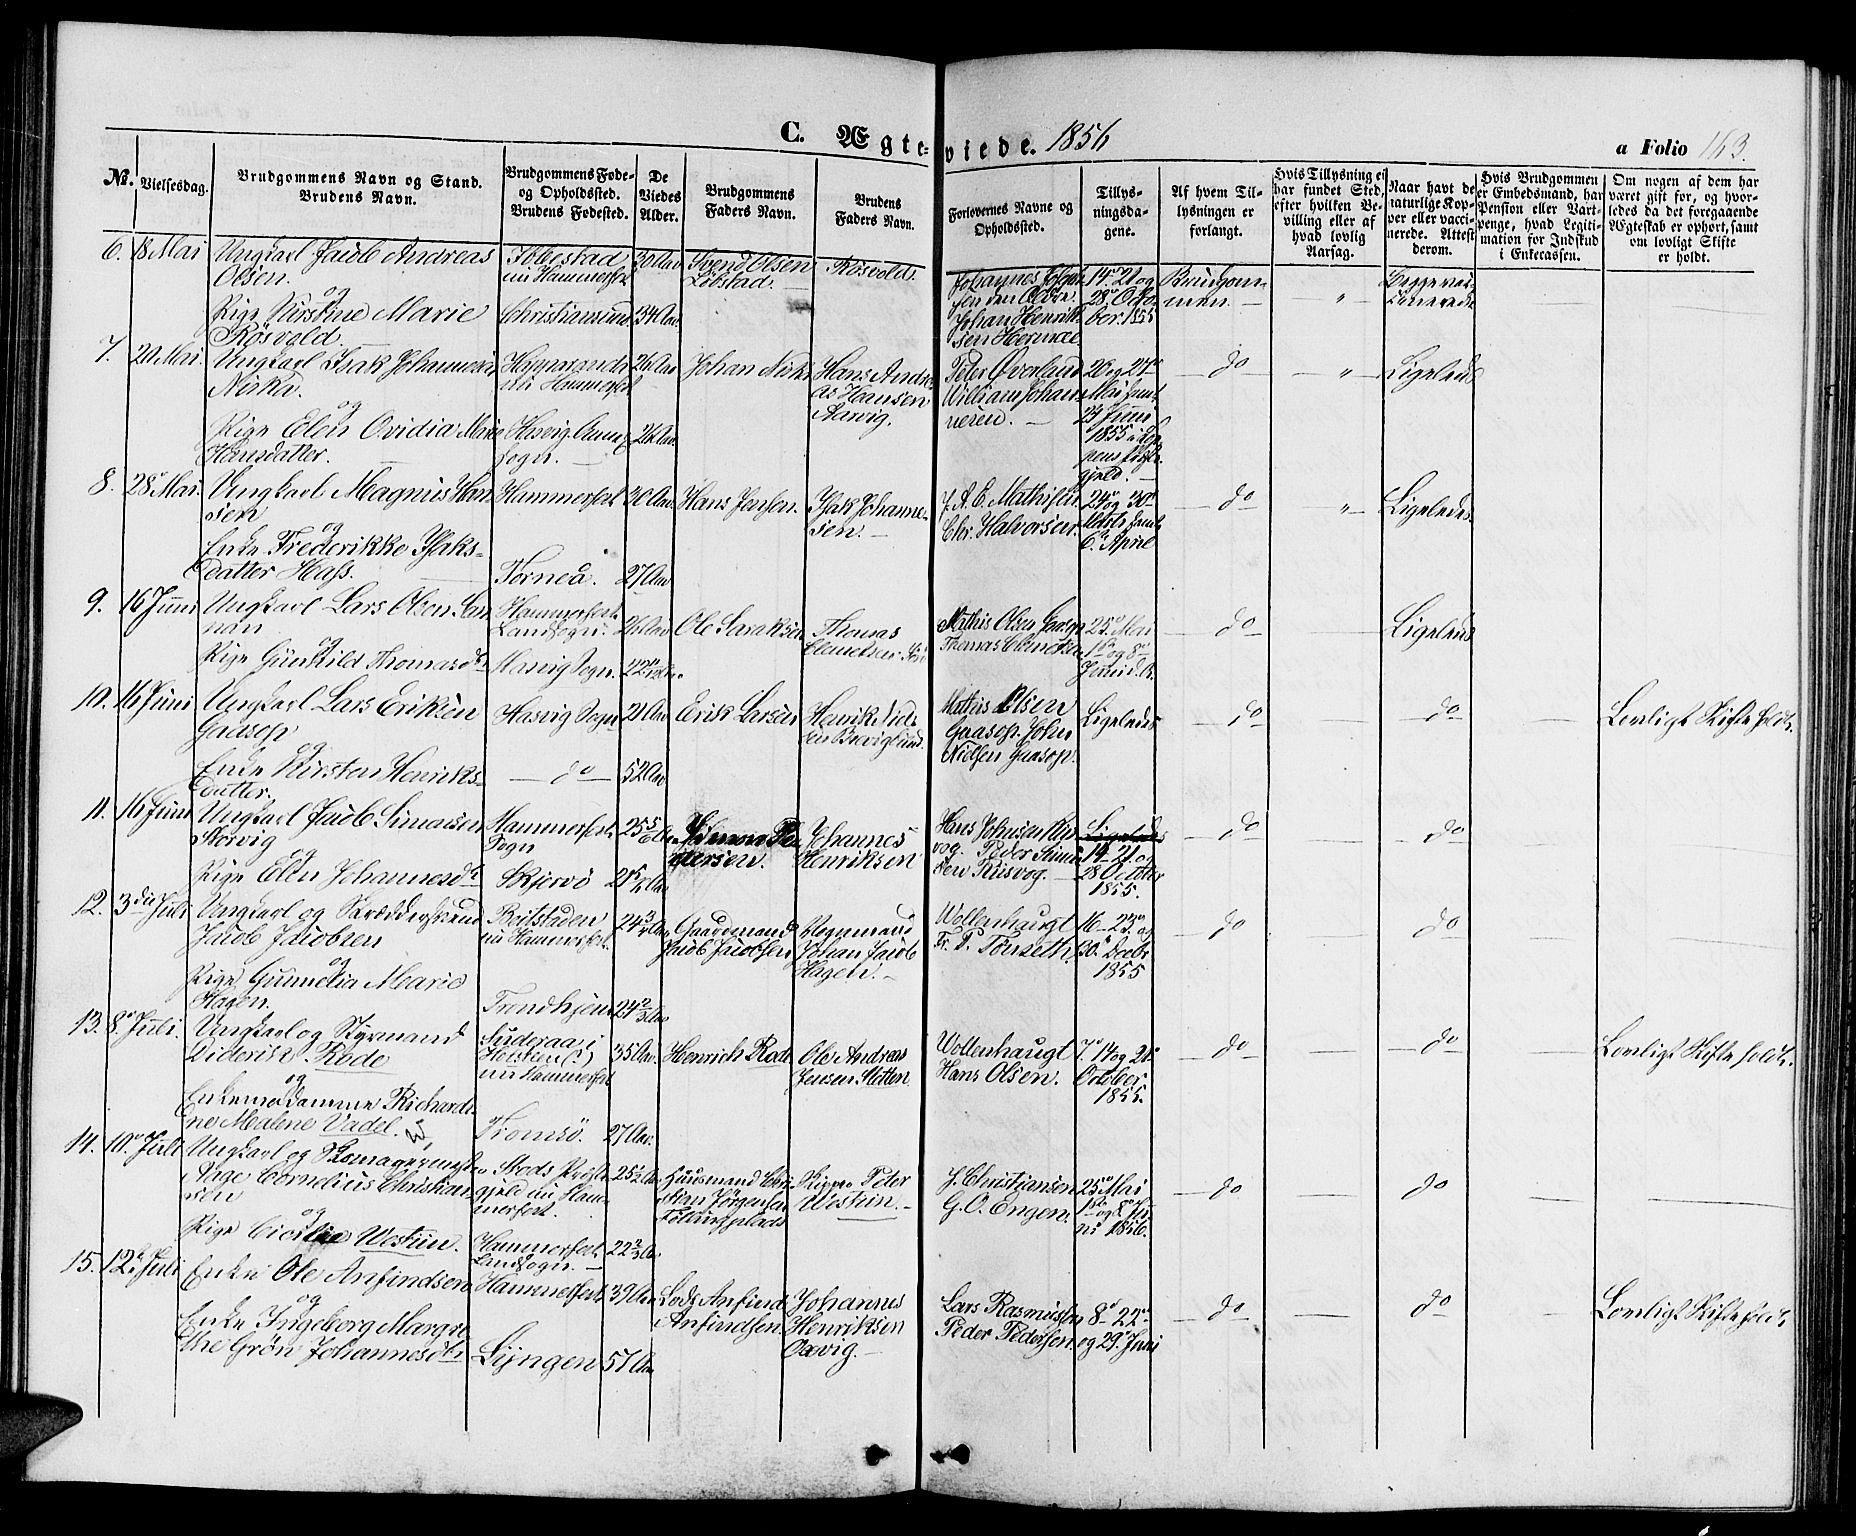 C. Ægte-viede. 1856
a Folio 163.
No. Vielsesdag.
Brudgommens Navn og Stand.
Brudens Navn.
Brudgommens Føde-
og Opholdssted.
Brudens Fødested.
De
Viedes
Alder.
Brudgommens
Faders Navn.
Brudens
Faders Navn.
Forlovernes Navne og
Opholdssted.
Tillys-
ningsda-
gene.
Af hvem Til-
lysningen er
forlangt.
Hvis Tillysning ei
har fundet Sted,
efter hvilken Be-
villing eller af
hvad lovlig
Aarsag.
Naar havt de
naturlige Kop-
per eller vacci-
nerede. Attest
derom.
Hvis Brudgommen
er Embedsmand, har
Pension eller Vart-
penge, hvad Legiti-
mation for Indskud
i Enkecassen.
Om nogen af dem har
været gift før, og hvor-
ledes da det foregaaende
Ægteskab er ophørt, samt
om lovligt Skifte
er holdt.
6. 18 Mai Ungkarl Jacob Andreas
Olsen.
og
Pige Kirstine Marie
Røsvold.
Ibbestad
nu Hammerfest
Christiansund
30 Aar
34 Aar
Svend Olsen
Løbstad.
Røsvold.
Johannes
Johan Henrik
14. 21 og
28 Octo
ber. 1855
Brudgom-
men.
Begge vac-
cinerede
7. 20 Mai. Ungkarl Isak Johannesen
Niska.
og
Pige Elen Ovidia Marie
Hansdatter.
nu Hammerfest
Hasvig Annex
Sogn.
26 Aar
26 Aar.
Johan Niska
Hans Andre
as Hansen
Aarvig.
Peder Øverland
William Johan
nesen.
20 og 27
Mai samt
24 Juni
1855
gjeld.
do
Ligeledes
8. 28 Mai. Ungkarl Magnus Han
sen
og
Enke Frederikke Isaks-
datter Hass.
Hammerfest
Torneå.
30 Aar.
27 Aar
Hans Jensen.
Isak Johanne-
sen.
J. A. E. Mathisen
Chr. Halvorsen.
24 og 30
Marts samt
6 April
do
Ligeledes
9. 16 Juni Ungkarl Lars Olsen
og
Pige Gunhild Thomasdr
Hammerfest
Landsogn.
Hasvig Sogn.
26 Aar
Ole
Thomas
Clemetsen
Mathis Olsen Gaasop
Thomas Clemetsen
25 Mai
1 og 8
Juni d. A.
do
Ligeledes
10. 16 Juni Ungkarl Lars Eriksen
Gaasop
og
Enke Kirsten Henriks-
datter.
Hasvig Sogn
do
21 Aar
52 Aar
Erik Larsen
Henrik Niel
sen
Mathis Olsen
Gaasop. John
Nielsen Gaasop.
Ligeledes
do
do
Lovligt Skifte holdt.
11. 16 Juni Ungkarl Jacob Simonsen
Storvig
og
Pige Elen Johannesdr
Hammerfest
Sogn
Skjervø
Simon Pe
dersen.
Johannes
Henriksen
Hans Johnsen
vog. Peder Simon
sen
Ligeledes
14. 21 og
28 October
1855.
do
do
12. 3die Juli Ungkarl og Skræddersvend
Jacob Jacobsen
og
Pige Gunnelia Marie
Hagen.
Beitstaden
nu Hammerfest.
Trondhjem
Gaardmand
Jacob Jacobsen
Vognmand
Johan Jacob
Hagen.
Wollenhaugt
Fr. P. Tønseth.
16 23 og
30 Decbr
1855
do
do
13. 8 Juli. Ungkarl og Styrmand
Diderik Rode
og
Enkemadamme Richardi-
ne Malene Vadel.
Süderaa i
Holsteen (?)
nu Hammerfest
Tromsö.
35 Aar.
27 Aar.
Henrich Rode
Ole Andreas
Jensen Sletten
Wollenhaugt
Hans Olsen.
7. 14 og 21
October
1855.
do
do
Lovligt Skifte holdt.
14. 10 Juli Ungkarl og Skomagersvend
Aage Cornelius Christian
sen
og
Pige Cicilie Westün.
Stods Præste
gjeld nu Ham
merfest.
Hammerfest
Landsogn.
Huusmand Chri
sten Jørgensen
Skipper Peter
Westün.
J. Christiansen
G. O. Engen.
25 Mai
1ste og 8 Ju
ni 1856.
do
do
15. 12 Juli Enke Ole Anfindsen
og
Enke Ingeborg Margre
the Grön Johannesdtr
Hammerfest
Lyngen
39 Aar
57 Aar
Lods Anfind
Anfindsen.
Johannes
Henriksen
Oxvig.
Lars Rasmussen
Peder Pedersen.
8 22
og 29 Juni
do
do
Lovligt Skifte holdt